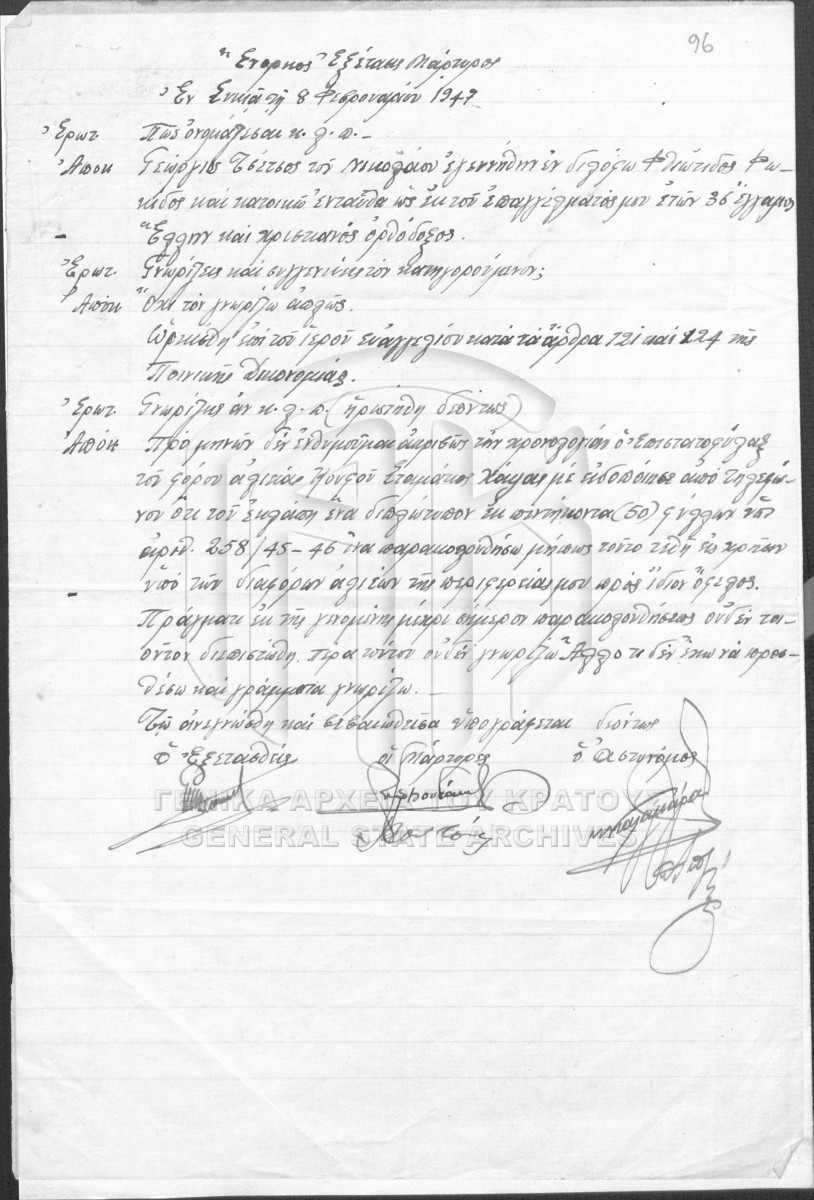 96
"Ένορκος Ἐξέτασις Μάρτυρος
Ἐν Συκιᾷ τῇ 8 Φεβρουαρίου 1947
Ἐρωτ. Πῶς ὀνομάζεσαι κ.λ.π. -
Ἀποκ Γεώργιος Τσέτσος τοῦ Νικολάου ἐγεννήθην ἐν Διλόφῳ Φθιώτιδος Φω-
κίδος καὶ κατοικῶ ἐνταῦθα ὡς ἐκ τοῦ ἐπαγγέλματός μου ἐτῶν 36 ἔγγαμος
- Ἕλλην καὶ χριστιανός ὀρθόδοξος.
Ἐρωτ. Γνωρίζεις καὶ συγγενεύεις τὸν κατηγορούμενον;
Ἀποκ Ὄχι τὸν γνωρίζω ἁπλῶς.
Ὡρκίσθη ἐπὶ τοῦ ἱεροῦ εὐαγγελίου κατὰ τὰ ἄρθρα 121 καὶ 124 τῆς
Ποινικῆς Δικονομίας.
Ἐρωτ. Γνωρίζεις ἂν κ.λ.π. (ἠρωτήθη δεόντως)
Ἀπόκ Πρὸ μηνῶν δὲν ἐνθυμοῦμαι ἀκριβῶς τὴν χρονολογίαν ὁ Ἐπιστατοφύλαξ
τοῦ φόρου ἁλιείας Κουφοῦ Σταμάτιος Χάψας μὲ εἰδοποίησε ἀπὸ τηλεφώ-
νου ὅτι τοῦ ἐκλάπη ἕνα διπλότυπον ἐκ πεντήκοντα (50) φύλλων ὑπ'
ἀριθ. 258/45-46 ἵνα παρακολουθήσω μήπως τοῦτο τεθῇ ἐν χρήσει
ὑπὸ τῶν διαφόρων ἁλιέων τῆς περιφερείας μου πρὸς ἴδιον ὄφελος.
- Πράγματι ἐκ τῆς γενομένης μέχρι σήμερον παρακολουθήσεως οὐδὲν τοι-
οῦτον διεπιστώθη. πέρα τούτου οὐδὲν γνωρίζω Ἄλλο τι δὲν ἔχω νὰ προσ-
θέσω καὶ γράμματα γνωρίζω. -
Ἐφ' ᾧ ἀνεγνώσθη καὶ βεβαιωθεῖσα ὑπογράφεται δεόντως
Ὁ Ἐξετασθείς οἱ Μάρτυρες ὁ Ἀστυνόμος
ΓΕΝΙΚΑ ΑΡΧΕΙΑ ΤΟΥ ΚΡΑΤΟΥΣ
GENERAL STATE ARCHIVES